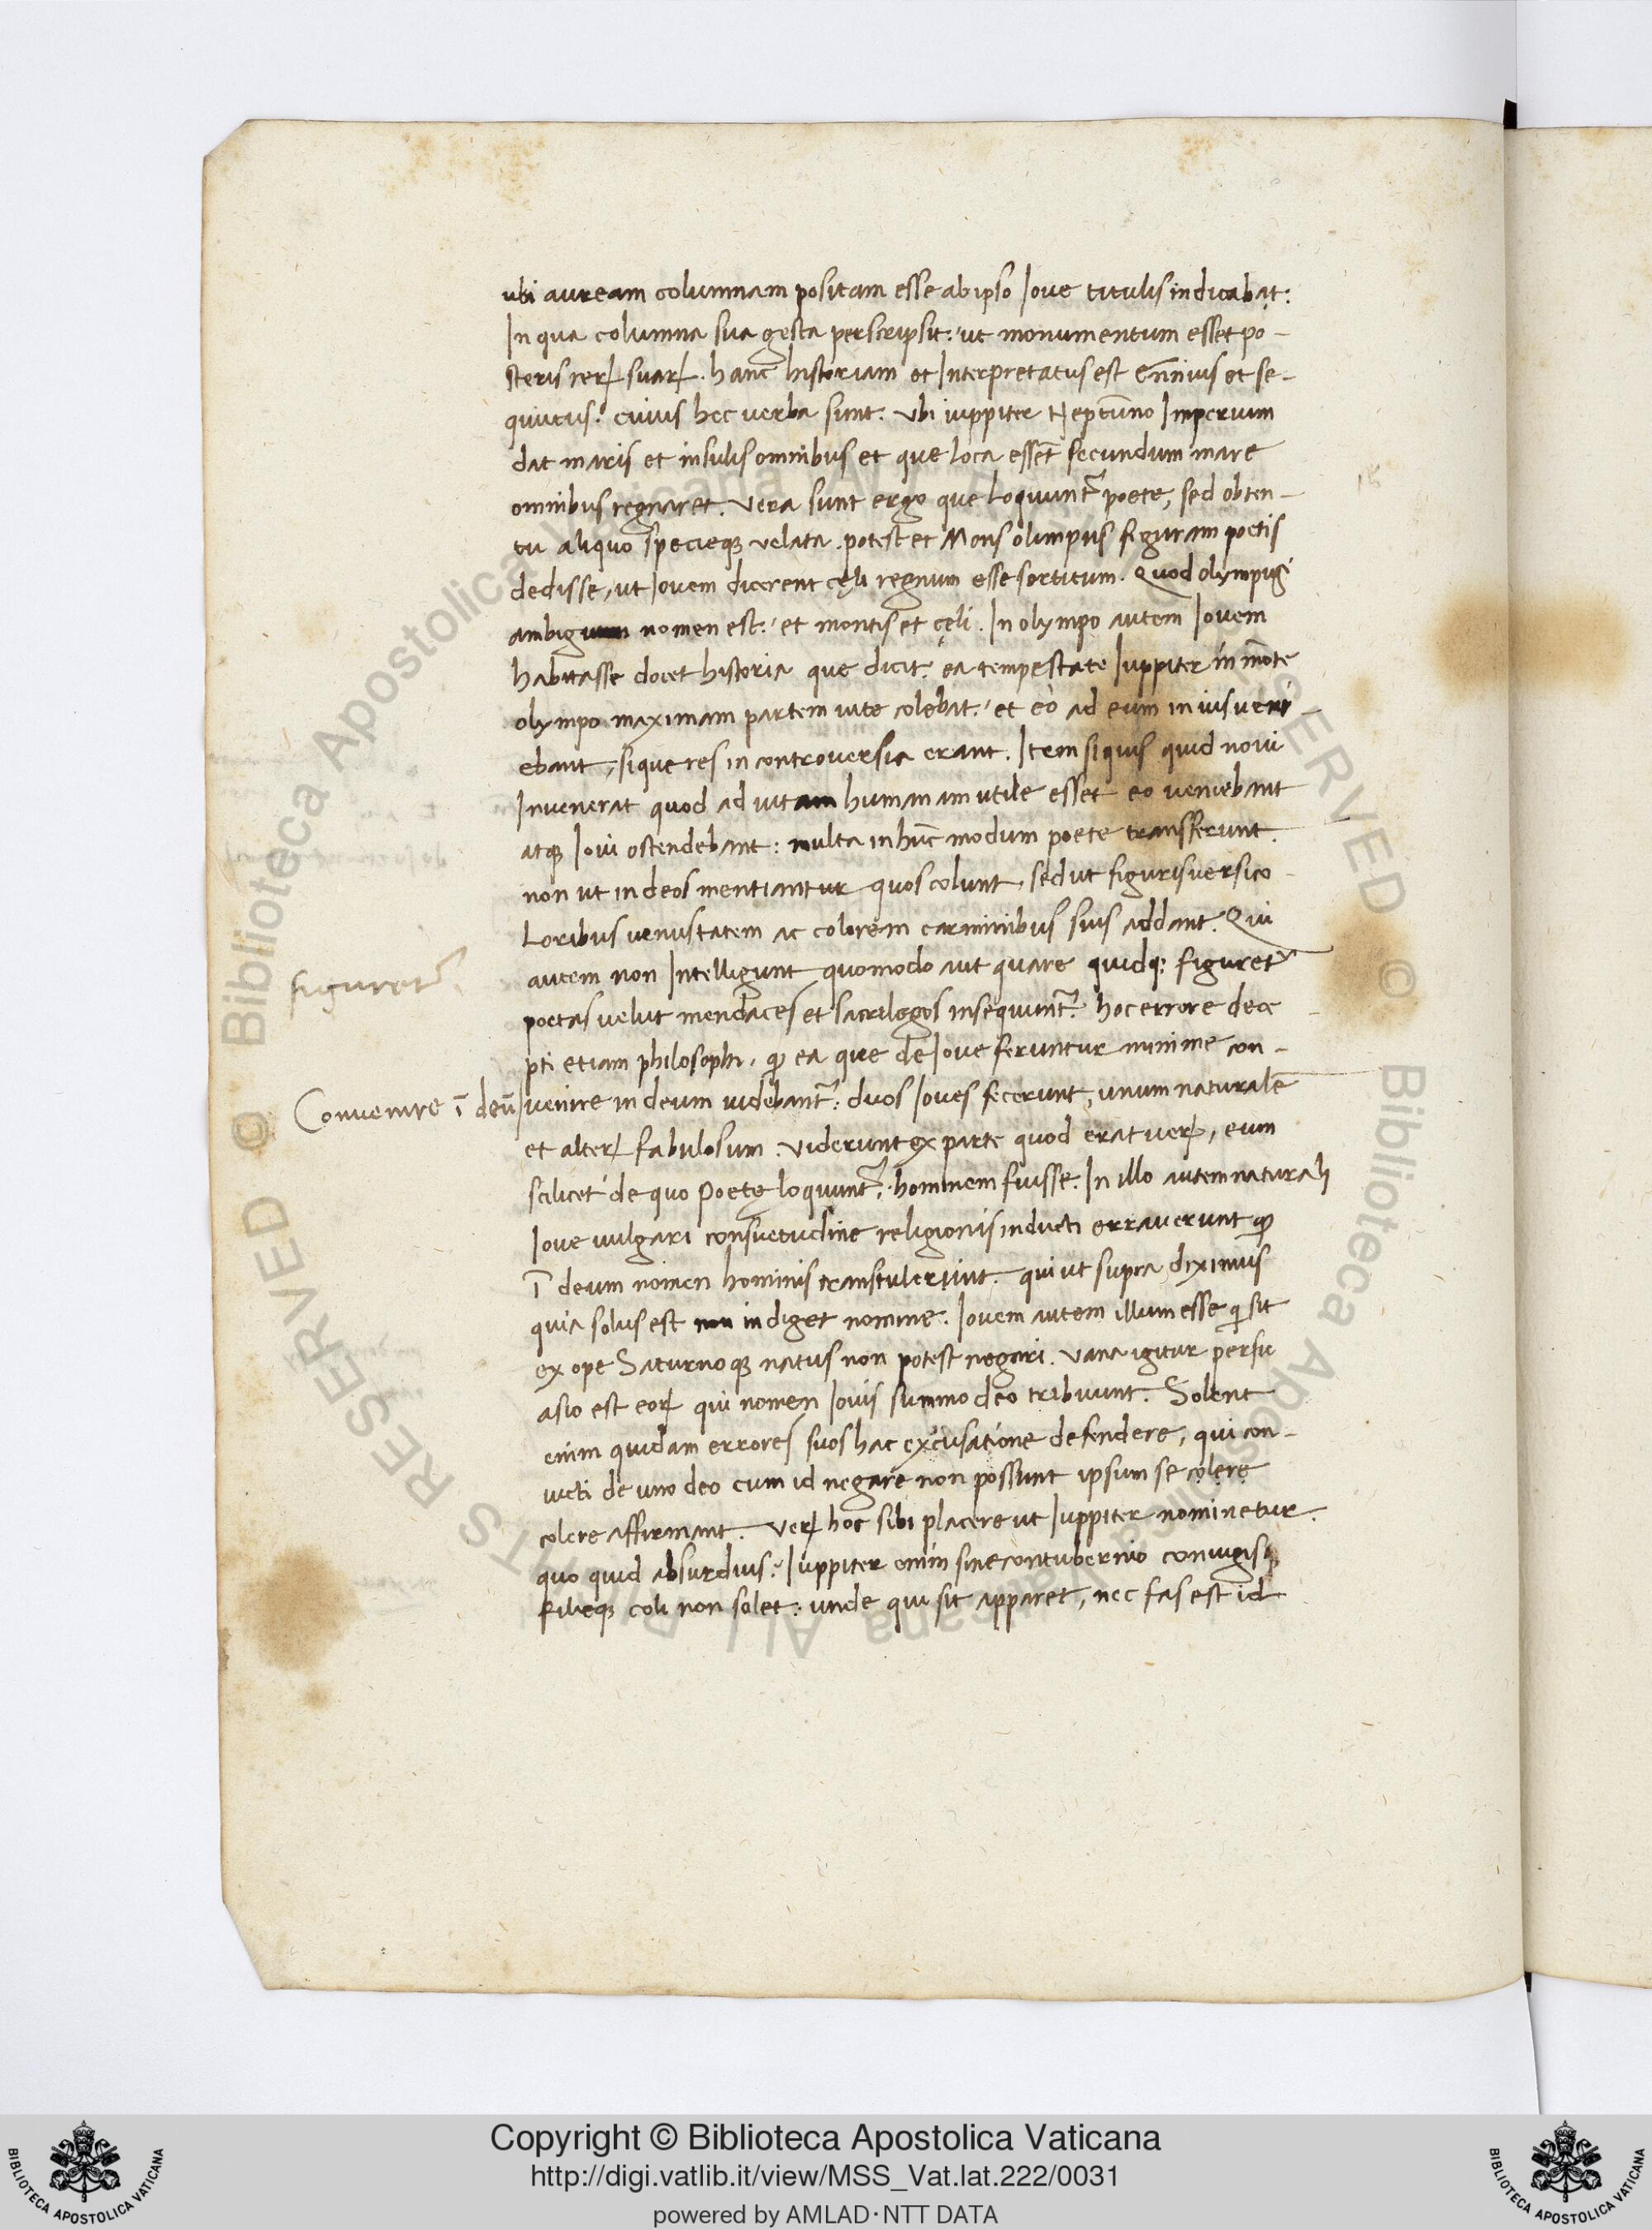 ubi auream columnam positam esse ab ipso Iove titulis indicabat:
In qua columna sua gesta perscripsit: ut monumentum esset po-
steris reꝝ suaꝝ. hanc historiam et Interpretatus est Ennius et se-
quutus: cuius hec verba sunt. Ubi iuppiter Neptuno Imperium
dat maris et insulis omnibus et que loca essēt secundum mare
omnibus regnaret. vera sunt ergo que loquunt᷑ poete, sed obten-
tu aliquo specieqꝫ velata. potest et Mons olimpus figuram poetis
dedisse, ut Iovem dicerent cęli regnum esse sortitum. Quod olympus
ambiguum nomen est: et montis et cęli. In olympo autem Iovem
habitasse docet historia que dicit: ea tempestate Iuppiter in mōte
olympo maximam partem vite colebat: et eo ad eum in ius veni-
ebant, si que res in controversia erant. Item si quis quid novi
Invenerat quod ad vitam humanam utile esset eo veniebant
atqꝫ Iovi ostendebant: multa in hūc modum poete transferunt.
non ut in deos mentiantur quos colunt, sed ut figuris versico-
loribus venustatem ac colorem carminibus suis addant. Qui
autem non Intelligunt quomodo aut quare quidqꝫ figuret᷑
figuret᷑
poetas velut mendaces et sacrilegos insequunt᷑. hoc errore dece-
pti etiam philosophi, ꝙ ea que de Iove feruntur minime con-
Convenire ī deū
venire in deum videbant᷑: duos Ioves fecerunt, unum naturalē
et alteꝝ fabulosum. viderunt ex parte quod erat veꝝ, eum
scilicet de quo Poetę loquunt᷑, hominem fuisse. In illo autem naturali
Iove vulgari consuetudine religionis inducti erraverunt ꝙ
ī deum nomen hominis transtulerunt. qui ut supra diximus
quia solus est non indiget nomine. Iovem autem illum esse qͥ sit
ex ope Saturnoqꝫ natus non potest negari. vana igitur persu
asio est eoꝝ qui nomen Iovis summo deo tribuunt. Solent
enim quidam errores suos hac excusatione defendere, qui con-
victi de uno deo cum id negare non possunt ipsum se colere
colere affirmant. veꝝ hoc sibi placere ut Iuppiter nominetur.
quo quid absurdius? Iuppiter enim sine contubernio coniugisqꝫ
filieqꝫ coli non solet: unde qui sit apparet, nec fas est id
Copyright © Biblioteca Apostolica Vaticana
http://digi.vatlib.it/view/MSS_Vat.lat.222/0031
powered by AMLAD·NTT DATA